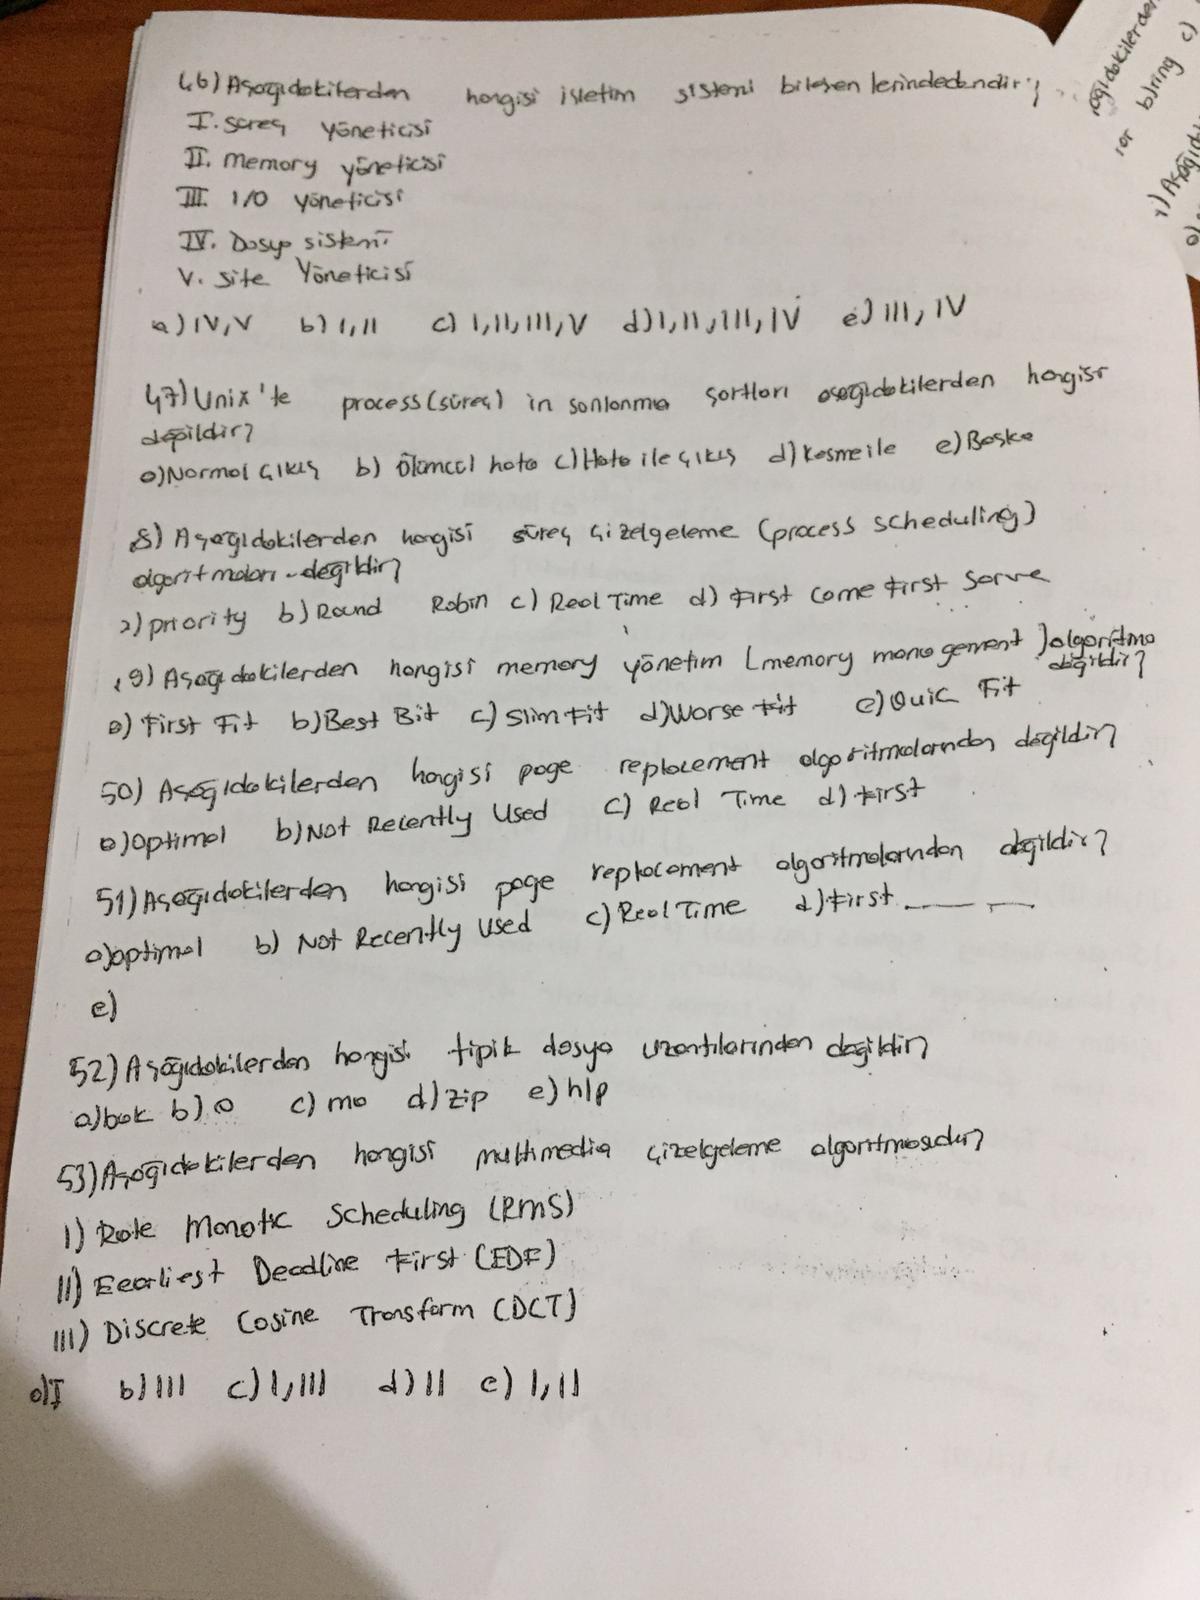 46) Aşağıdakilerden hangisi işletim sistemi bileşenlerindedendir?
I. Süreç yöneticisi
II. Memory yöneticisi
III. I/O yöneticisi
IV. Dosya sistemi
V. Site Yöneticisi
a) IV, V b) I, II c) I, II, III, V d) I, II, III, IV e) III, IV
47) Unix'te process (süreç) in sonlanma şartları aşağıdakilerden hangisi
değildir?
a) Normal Çıkış b) Ölümcül hata c) Hata ile çıkış d) Kesme ile e) Başka
8) Aşağıdakilerden hangisi süreç çizelgeleme (process scheduling)
algoritmaları değildir?
a) priority b) Round Robin c) Real Time d) First come First Serve
9) Aşağıdakilerden hangisi memory yönetim (memory management) algoritma
değildir?
a) First Fit b) Best Bit c) Slim Fit d) Worse Fit e) Quic Fit
50) Aşağıdakilerden hangisi page replacement algoritmalarından değildir?
a) Optimal b) Not Recently Used c) Real Time d) First
51) Aşağıdakilerden hangisi page replacement algoritmalarından değildir?
a) optimal b) Not Recently Used c) Real Time d) First
e)
52) Aşağıdakilerden hangisi tipik dosya uzantılarından değildir?
a) bak b) o c) ma d) zip e) hlp
53) Aşağıdakilerden hangisi multimedia çizelgeleme algoritmasıdır?
I) Rate Monotic Scheduling (RMS)
II) Eearliest Deadline First (EDF)
III) Discrete Cosine Transform (DCT)
a) I b) III c) I, III d) II e) I, II
ağıdakilerden
b) ring c)